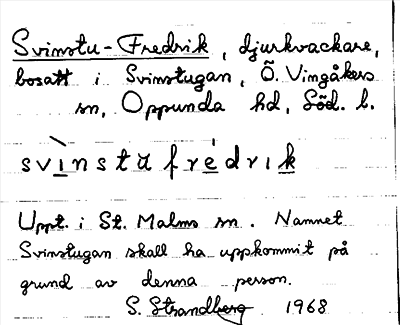 Svinstu-Fredrik, djurkvackare,
bosatt i Svinstugan, Ö. Vingåkers
sn, Oppunda hd, Söd. l.
svìnstu frédrık
Uppt. i St. Malms sn. Namnet
Svinstugan skall ha uppkommit på
grund av denna person.
S. Strandberg 1968